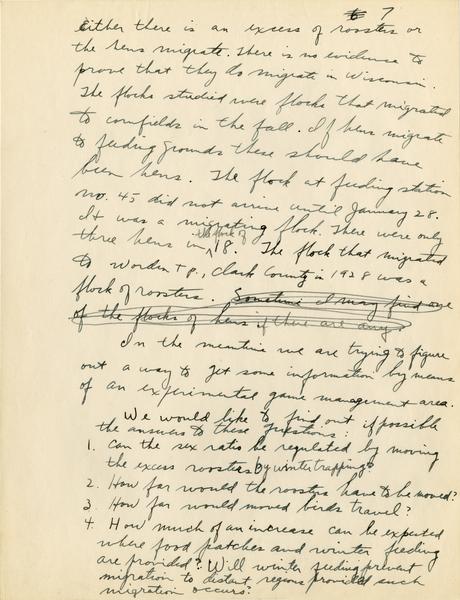 7
Either there is an excess of roosters or
the hens migrate. There is no evidence to
prove that they do migrate in Wisconsin.
The flocks studied were flocks that migrated
to cornfields in the fall. If hens migrate
to feeding grounds these should have
been hens. The flock at feeding station
no. 45 did not arrive until January 28.
It was a migrating flock. There were only
three hens in the flock of 18. The flock that migrated
to Worden Tp., Clark County in 1928 was a
flock of roosters. Sometime I may find one
of the flocks of hens if there are any.
In the meantime we are trying to figure
out a way to get some information by means
of an experimental game management area.
We would like to find out if possible
the answers to these questions:
1. Can the sex ratio be regulated by moving
the excess roosters by winter trapping?
2. How far would the roosters have to be moved?
3. How far would moved birds travel?
4. How much of an increase can be expected
where food patches and winter feeding
are provided? Will winter feeding prevent
migration to distant regions provided such
migration occurs?